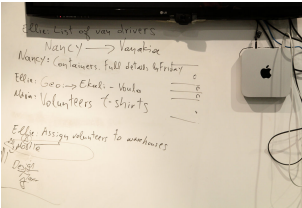 Ellie: List of van drivers
Nancy → Varvakia
Nancy: Containers. Full details by Friday
Ellie: Geo → Ekali - Voula
Maria: Volunteers t-shirts
Ellie: Assign volunteers to warehouses